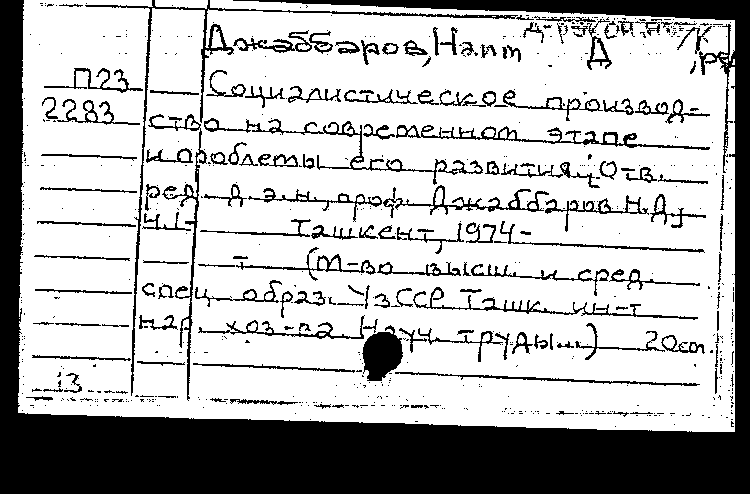 Джаббаров, Наит Д /К
П23 Социалистическое производ-
2283 ство на современном этапе
и проблемы его развития. [Отв.
ред. д.э.н., проф. Джаббаров Н.Д.]
Ч.1- Ташкент, 1974-
т (М-во высш. и сред.
спец. образ. УзССР. Ташк. ин-т
нар. хоз-ва. Науч. труды...) 20см.
13